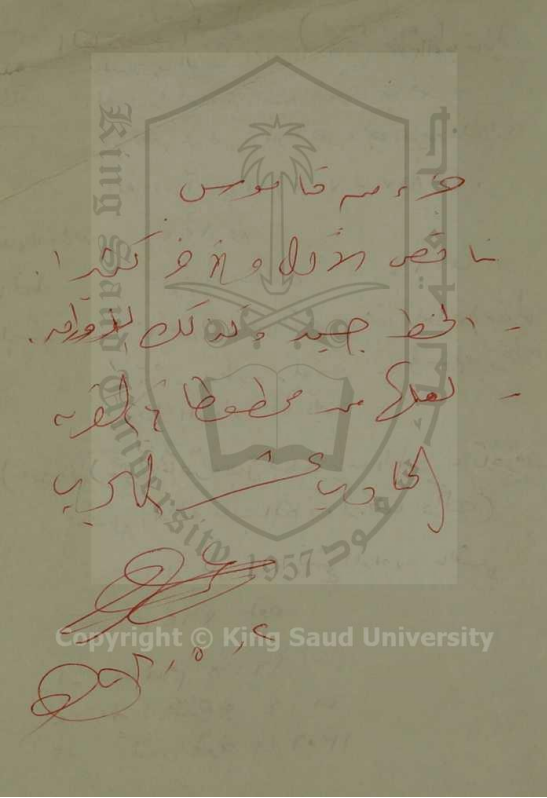 جزء من قاموس
ناقص الأول والآخر كثيرا.
- الخط جيد وكذلك الأوراق.
- لعلها من مخطوطات القرن
الحادي عشر الهجري
King Saud University
جامعة الملك سعود
1957
Copyright © King Saud University